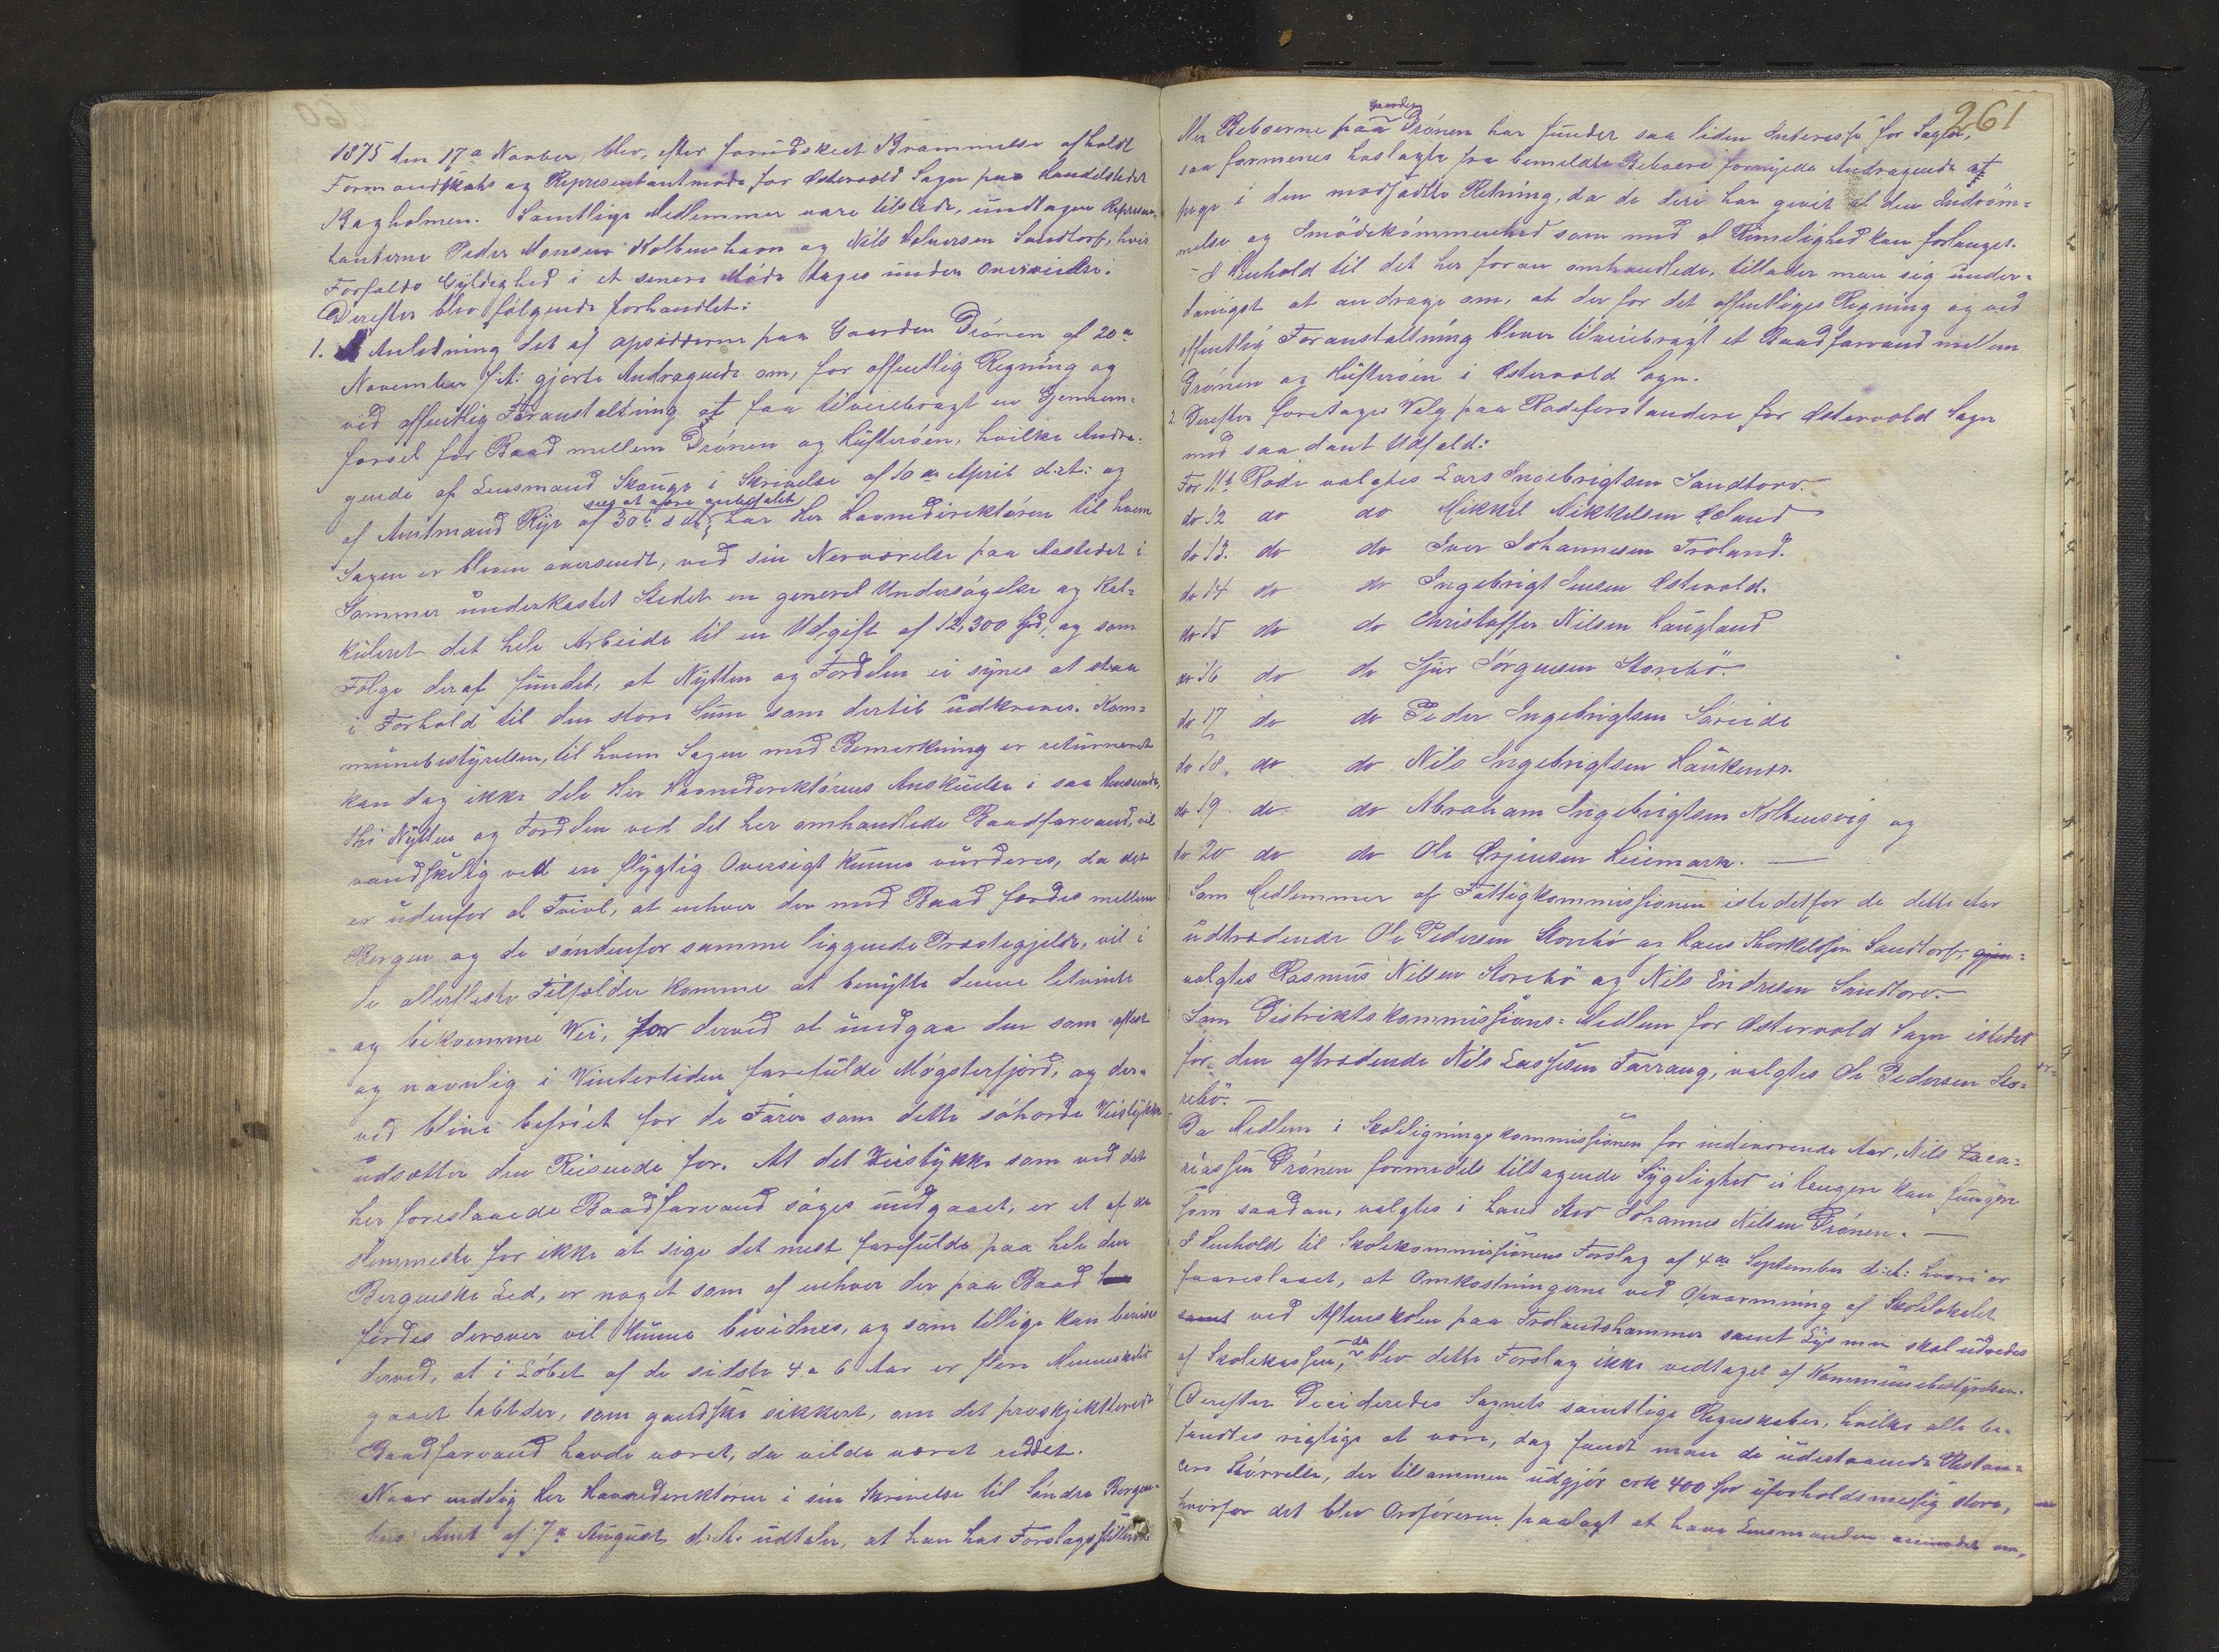 1875 den 17de Novber, blev, efter forudskeet Berammelse afholdt
Formandskabs og Representantmöde for Østervold Sogn paa Handelstedet
Bagholmen. Samtlige Medlemmer vare tilstede, undtagen Represen-
tanterne Peder Monsen Kolbenshavn og Nils Halvorsen Sandtorf, hvis
Forfalds Gyldighed i et senere Möde tages under Overveielse.
Derefter blev følgende forhandlet:
1. I Anledning det af opsidderne paa Gaarden Drónen af 20de
November f:A: gjorte Andragende om, for offentlig Regning og
ved offentlig Foranstaltning at faa tilveiebragt en Gjennem-
farsel for Baad mellem Drónen og Hüfteróen, hvilke Andra-
gende af Lensmand Skauge i Skrivelse af 10de April d:A: og
af Amtmand Rije af 30te s dt: seet at være anbefalet har Her Havnedirektören til hvem
Sagen er bleven oversendt, ved sin Nerværelse paa Aastedet i
Sommer underkastet Stedet en generel Undersögelse og Kal-
kuleret det hele Arbeide til en Udgift af 12,300 Spd, og som
Følge deraf fundet, at Nytten og Fordelen ei synes at staa
i Forhold til den store Sum som dertil udkreves. Kom-
munebestyrelsen, til hvem Sagen med Bemerkning er returneret
kan dog ikke dele Her Havnedirektörens Anskuelse i saa Henseende,
thi Nytten og Fordelen ved det her omhandlede Baadfarvand, vil
vandskelig ved en flygtig Oversigt kunne vurderes, da det
er udenfor al Tvivl, at enhver der med Baad færdes mellem
Bergen og de söndenfor samme liggende Præstegjelde, vil i
de allerfleste Tilfælder komme at benytte denne letvinte
og bekvemme Vei, for derved at undgaa den som oftest
og navnlig i Vintertiden farefulde Mögsterfjord, og der-
ved blive befriet for de Farer som dette söhaarde Veistykke
udsætter den Reisende for. At det Veistykke som ved det
her foreslaaede Baadfarvand söges undgaaet, er et af de
slemmeste for ikke at sige det mest farefulde paa hele den
Bergenske Led, er noget som af enhver der paa Baad
færdes derover vil kunne bevidnes, og som tillige kan bevises
derved, at i Löbet af de sidste 4 a 6 Aar er flere Menneskeliv
gaaet tabt der, som gandske sikkert, om det proskjekterede
Baadfarvand havde været, da vilde været reddet.
Naar endelig Her Havnedirektören i sin Skrivelse til Söndre Bergen-
hus Amt af 7de August d:A: udtaler, at han hos Forslagsstillerne
261
eller Beboerne paa Gaarden Drónen har funder saa liden Interesse for Sagen,
saa formenes hoslagte fra bemeldte Beboere fornyede Andragende at
pege i den modsadte Retning, da de deri har givet al den Indröm-
melse og Imödekommenhed som med al Rimelighed kan forlanges.
I Henhold til det her foran omhandlede, tillader man sig under-
danigst at andrage om, at der for det offentliges Regning og ved
offentlig Foranstaltning bliver tilveiebragt et Baadfarvand mellem
Drónen og Hüfteróen i Østervold Sogn.
2. Derefter foretages Valg paa Rodeforstandere for Østervold Sogn
med saadant Udfald:
For 11te Rode valgtes Lars Ingebrigtsen Sandtorv.
do 12 do do Mikkel Mikkelsen Øeland
do 13. do do Iver Johannesen Troland.
do 14 do do Ingebrigt Jensen Østevold.
do 15 do do Christoffer Nilsen Haugland
do 16 do do Sjur Jörgensen Storebö.
do 17 do do Peder Ingebrigtsen Söreide
do 18. do do Nils Ingebrigtsen Haukenæs.
do 19. do do Abraham Ingebrigtsen Kolbensvig og
do 20 do do Ole Ørjensen Leiemark.
Som Medlemmer af Fattigkommissionen istedetfor de dette Aar
udtredende Ole Pedersen Storebö og Hans Thorkeldsen Sandtorf, gjen-
valgtes Rasmus Nilsen Storebö og Nils Endresen Sandtorv.
Som Distriktskommissions-Medlem for Østervold Sogn istedet
for den aftrædende Nils Lassesen Tarrang, valgtes Ole Pedersen Sto-
rebö.
Da Medlem i Skoleligningskommissionen for indeværende Aar, Nils Zaca-
riassen Drónen formedels tiltagende Sygelighed ei lengere kan fungere
som saadan, valgtes i hans Sted Johannes Nilsen Drónen.
I Henhold til Skolekommissionens Forslag af 4de September d:A: hvori er
foareslaaet, at Omkostningerne ved Opvarmning af Skolelokalet
samt ved Aftenskolen paa Trolandshammer samt Lys m.m. skal udredes
af Skolekassen, da blev dette Forslag ikke vedtaget af Kommunebestyrelsen.
Derefter Decideredes Sognets samtlige Regnskaber, hvilke alle be-
fandtes rigtige at være, dog fandt man de udestaaende Restan-
cers Störrelse, der tilsammen udgjör crk 400 Spd uforholdsmessig store,
hvorfor det blev Ordföreren paalagt at have Lensmanden anmodet om,